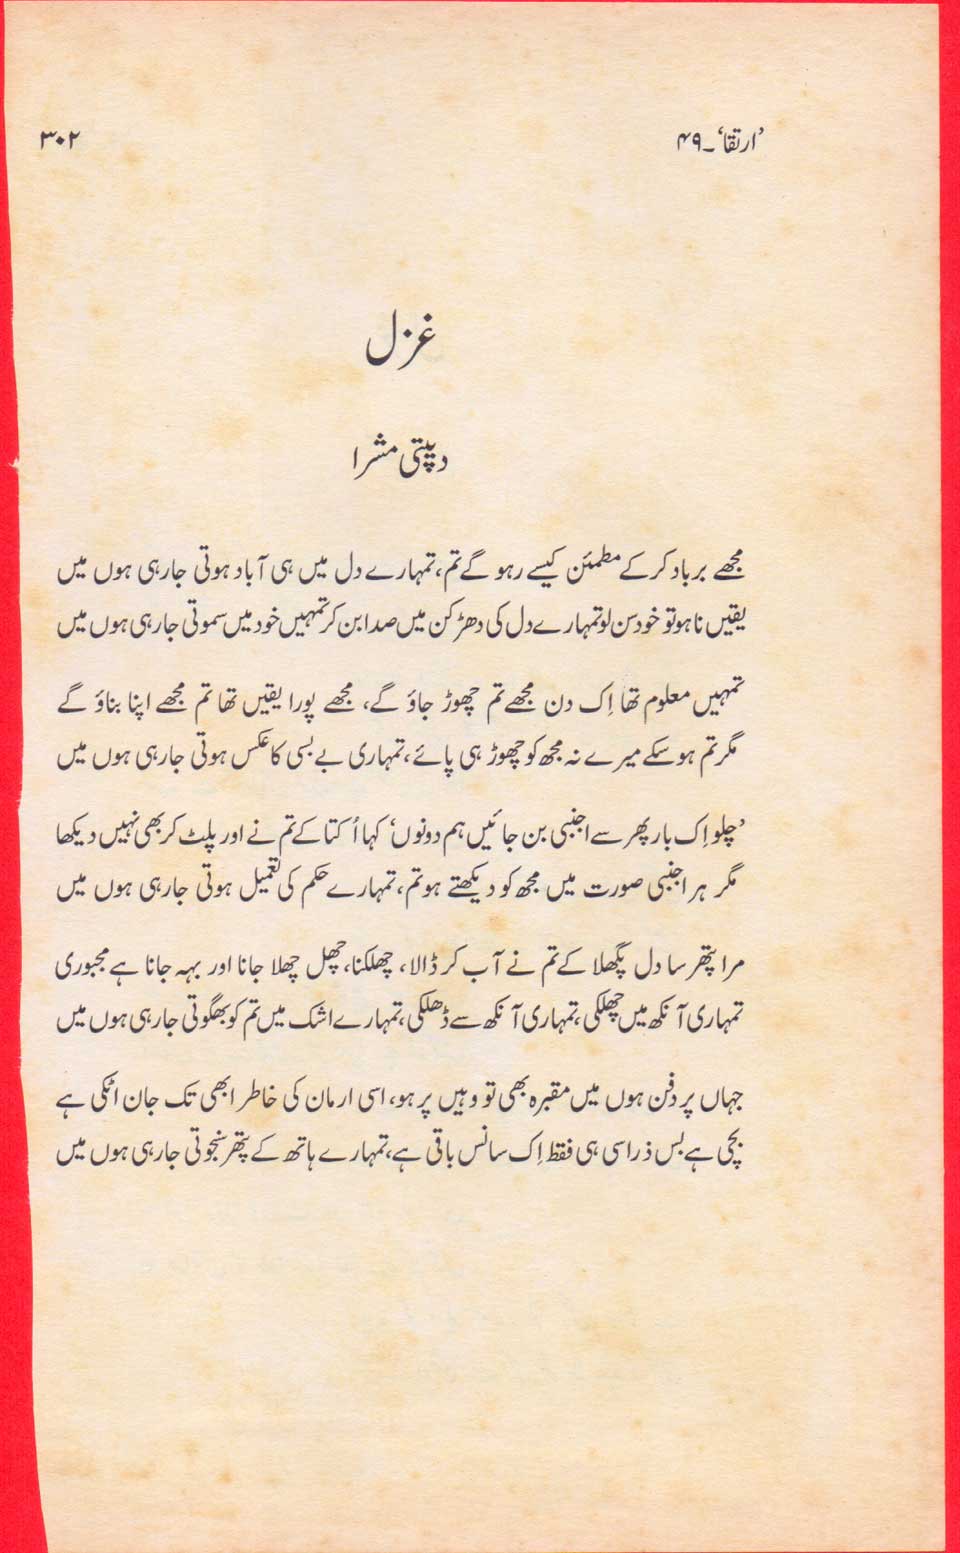 ’ارتقا‘۔۴۹
۳۰۲
غزل
دپیتی مشرا
مجھے برباد کر کے مطمئن کیسے رہو گے تم، تمہارے دل میں ہی آباد ہوتی جا رہی ہوں میں
یقیں نا ہو تو خود سن لو تمہارے دل کی دھڑکن میں صدا بن کر تمہیں خود میں سموتی جا رہی ہوں میں
تمہیں معلوم تھا اِک دن مجھے تم چھوڑ جاؤ گے، مجھے پورا یقیں تھا تم مجھے اپنا بناؤ گے
مگر تم ہو سکے میرے نہ مجھ کو چھوڑ ہی پائے، تمہاری بے بسی کا عکس ہوتی جا رہی ہوں میں
’چلو اِک بار پھر سے اجنبی بن جائیں ہم دونوں‘ کہا اُکتا کے تم نے اور پلٹ کر بھی نہیں دیکھا
مگر ہر اجنبی صورت میں مجھ کو دیکھتے ہو تم، تمہارے حکم کی تعمیل ہوتی جا رہی ہوں میں
مرا پتھر سا دل پگھلا کے تم نے آب کر ڈالا، چھلکنا، چھل چھلا جانا اور بہہ جانا ہے مجبوری
تمہاری آنکھ میں چھلکی، تمہاری آنکھ سے ڈھلکی، تمہارے اشک میں تم کو بھگوتی جا رہی ہوں میں
جہاں پر دفن ہوں میں مقبرہ بھی تو وہیں پر ہو، اسی ارمان کی خاطر ابھی تک جان اٹکی ہے
بچی ہے بس ذرا سی ہی فقط اِک سانس باقی ہے، تمہارے ہاتھ کے پتھر سنجوتی جا رہی ہوں میں